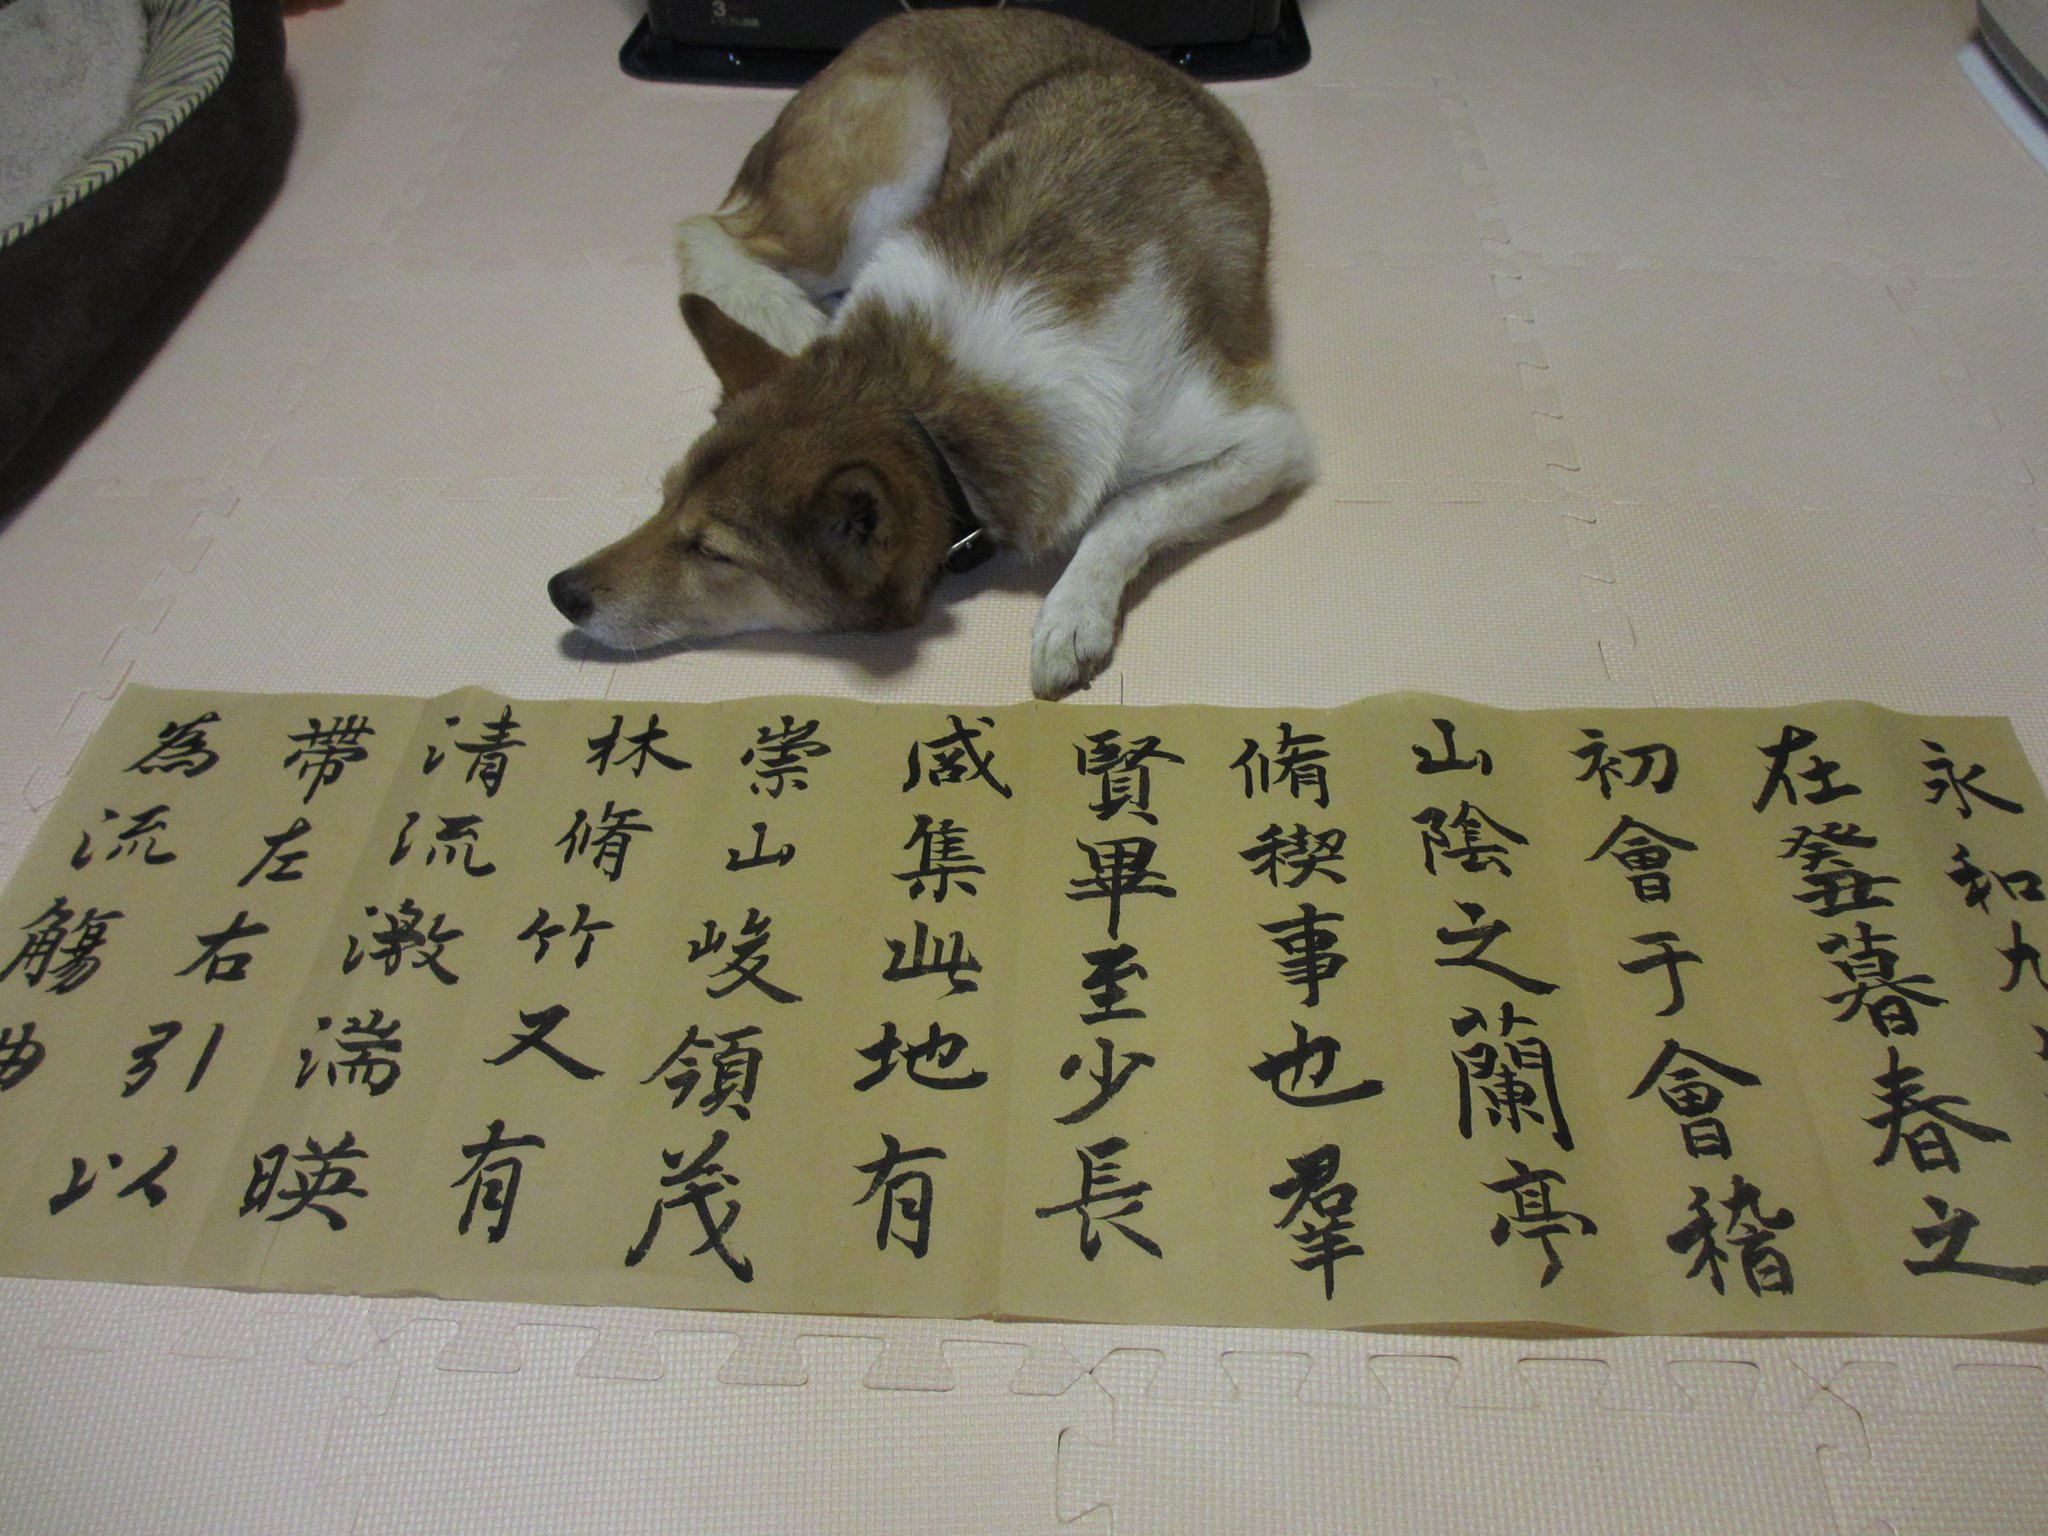 永和九
在癸丑暮春之
初會于會稽
山陰之蘭亭
脩稧事也羣
賢畢至少長
咸集此地有
崇山峻領茂
林脩竹又有
清流激湍暎
帶左右引以
為流觴曲
3